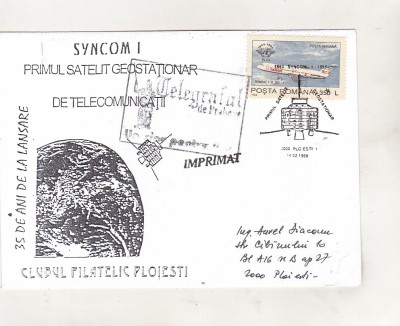 SYNCOM I
PRIMUL SATELIT GEOSTAȚIONAR
DE TELECOMUNICAȚII
35 DE ANI DE LA LANSARE
CLUBUL FILATELIC PLOIEȘTI
Telegraful
de Prahova
IMPRIMAT
POȘTA ROMÂNĂ
L
PRIMUL SATELIT GEOSTAȚIONAR
2000 PLOIEȘTI 1
14.02.1998
Ing. Aurel Diaconu
Str Cibinului 10
Bl A16 ap 27
2000 Ploiești